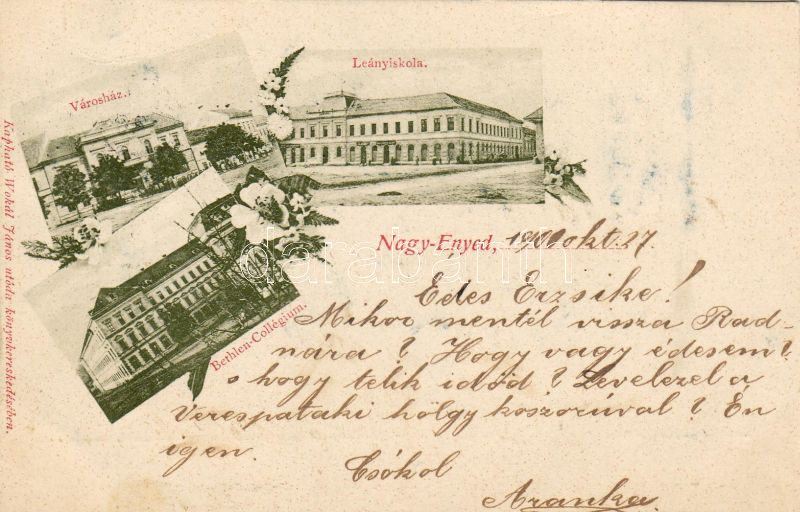 Városház.
Leányiskola.
Bethlen-Collégium.
Kapható Wokál János utóda könyvkereskedésében.
Nagy-Enyed, 1900 okt. 27.
Édes Erzsike!
Mikor mentél vissza Rad-
nára? Hogy vagy édesem?
s hogy telik időd? Levelezel a
Verespataki hölgy koszorúval? Én
igen.
Csókol
Aranka
darabanth